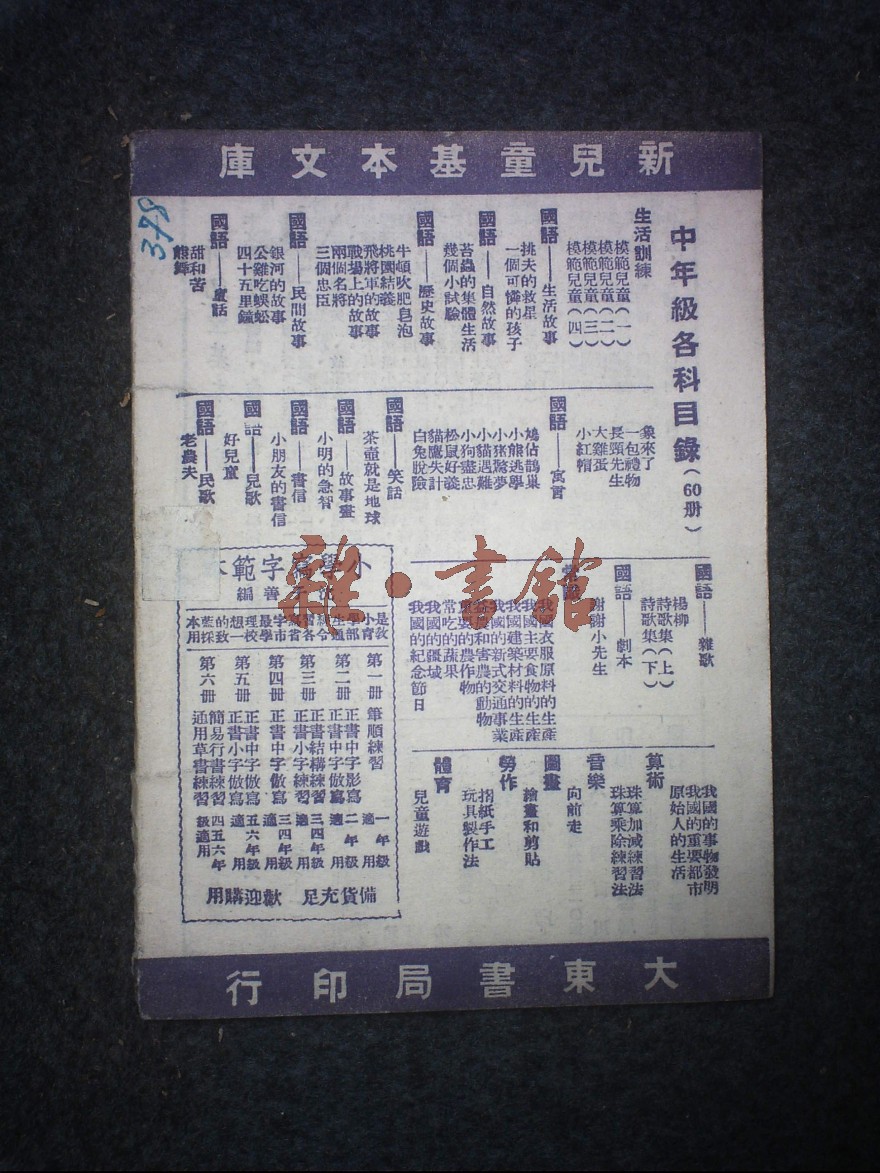 新兒童基本文庫
中年級各科目錄（60册）
生活訓練
模範兒童（一）
模範兒童（二）
模範兒童（三）
模範兒童（四）
國語——生活故事
挑夫的救星
一個可憐的孩子
國語——自然故事
苔蟲的集體生活
幾個小試驗
國語——歷史故事
牛頓吹肥皂泡
桃園結義
飛將軍的故事
戰場上的故事
兩個名將
三個忠臣
國語——民間故事
銀河的故事
公雞吃蜈蚣
四十五里鐘
國語——童話
甜和苦
象來了
一包禮物
長頸先生
大雞蛋
小紅帽
國語——寓言
鳩佔鵲巢
小熊逃學
小豬驚夢
小貓遇難
小狗盡忠
松鼠好義
貓鷹失計
白兔脫險
國語——笑話
茶壺就是地球
國語——故事畫
小明的急智
國語——書信
小朋友的書信
國語——兒歌
好兒童
國語——民歌
老農夫
國語——雜歌
楊柳
詩歌集（上）
詩歌集（下）
國語——劇本
謝謝小先生
常識
我國衣服原料的生產
我國主要食物的生產
我國建築材料的生產
我國的新式交通事業
益農和害農的動物
重要的農作物
常吃的蔬果
我國的疆域
我國的紀念節日
我國的事物發明
我國的重要都市
原始人的生活
算術
珠算加減練習法
珠算乘除練習法
音樂
向前走
圖畫
繪畫和剪貼
勞作
摺紙手工
玩具製作法
體育
兒童遊戲
小學寫字範本
第一册 筆順練習 一年級適用
第二册 正書中字影寫 正書中字倣寫 二年級適用
第三册 正書結構練習 正書小字練習 三四年級適用
第四册 正書中字倣寫 三四年級適用
第五册 正書中字倣寫 正書小字倣寫 五六年級適用
第六册 簡易行書練習 通用草書練習 四五六年級適用
備貨充足 歡迎購用
大東書局印行
378
雜·書館